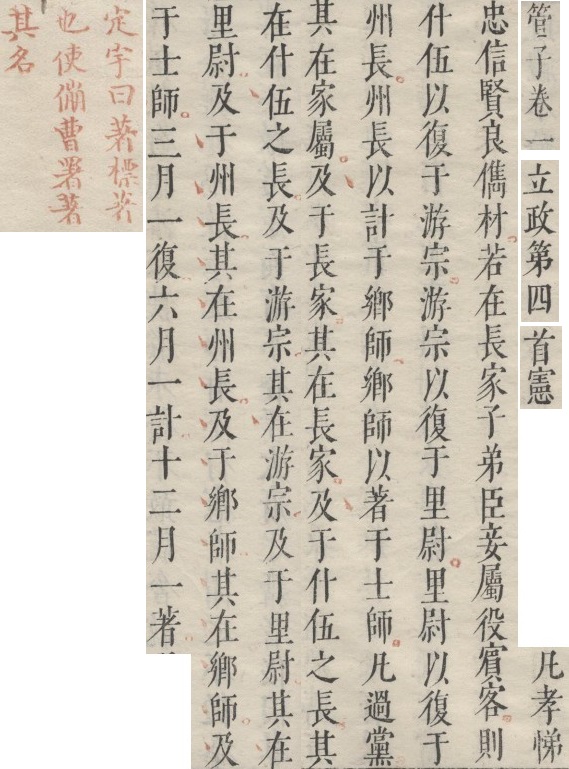 管子卷一
立政第四
首憲
凡孝悌
忠信賢良儁材若在長家子弟臣妾屬役賓客則
什伍以復于游宗游宗以復于里尉里尉以復于
州長州長以計于鄉師鄉師以著于士師凡過黨
其在家屬及于長家其在長家及于什伍之長其
在什伍之長及于游宗其在游宗及于里尉其在
里尉及于州長其在州長及于鄉師其在鄉師及
于士師三月一復六月一計十二月一著
定宇曰著標著
也使僃曹署著
其名